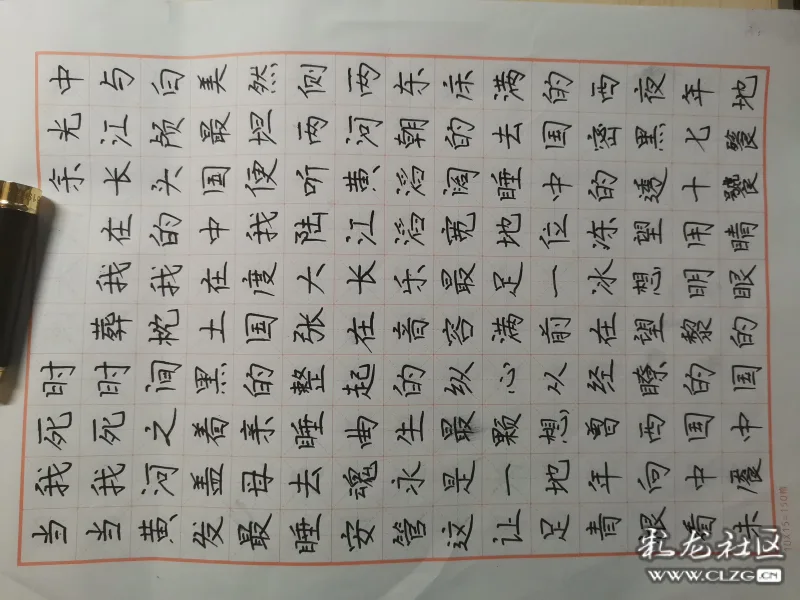 当我死时 余光中
当我死时葬我在长江与
黄河之间枕我的头颅白
发盖着黑土在中国最美
最母亲的国度我便坦然
睡去睡整张大陆听两侧
安魂曲起在长江黄河两
管永生的音乐滔滔朝东
这是最纵容最宽阔的床
让一颗心满足地睡去满
足地想从前一位中国的
青年曾经在冰冻的密西
根向西瞭望想望透黑夜
看中国的黎明用十七年
未餍中国的眼睛饕餮地
10X15=150格
彩龙社区
www.CLZG.CN